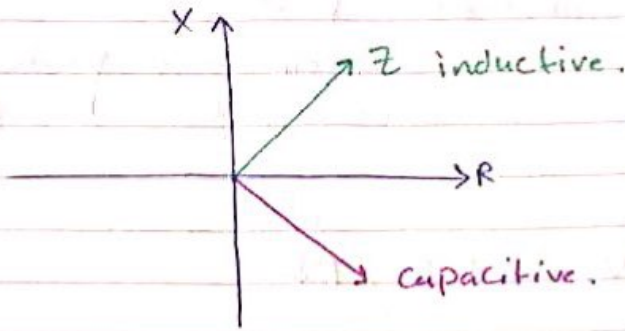 X
Z inductive.
R
capacitive.